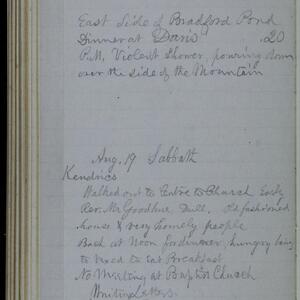 East Side of Bradford Pond
Dinner at Davis .20
P.M. Violent Shower, pouring down
over the side of the Mountain
Aug. 19 Sabbath
Kendrics
Walked out to Centre to Church Early
Rev. Mr Goodhue, Dull. Old fashioned
house & very homely people
Back at Noon for dinner, hungry being
to tired to Eat Breakfast
No Meeting at Baptist Church
Writing Letters.